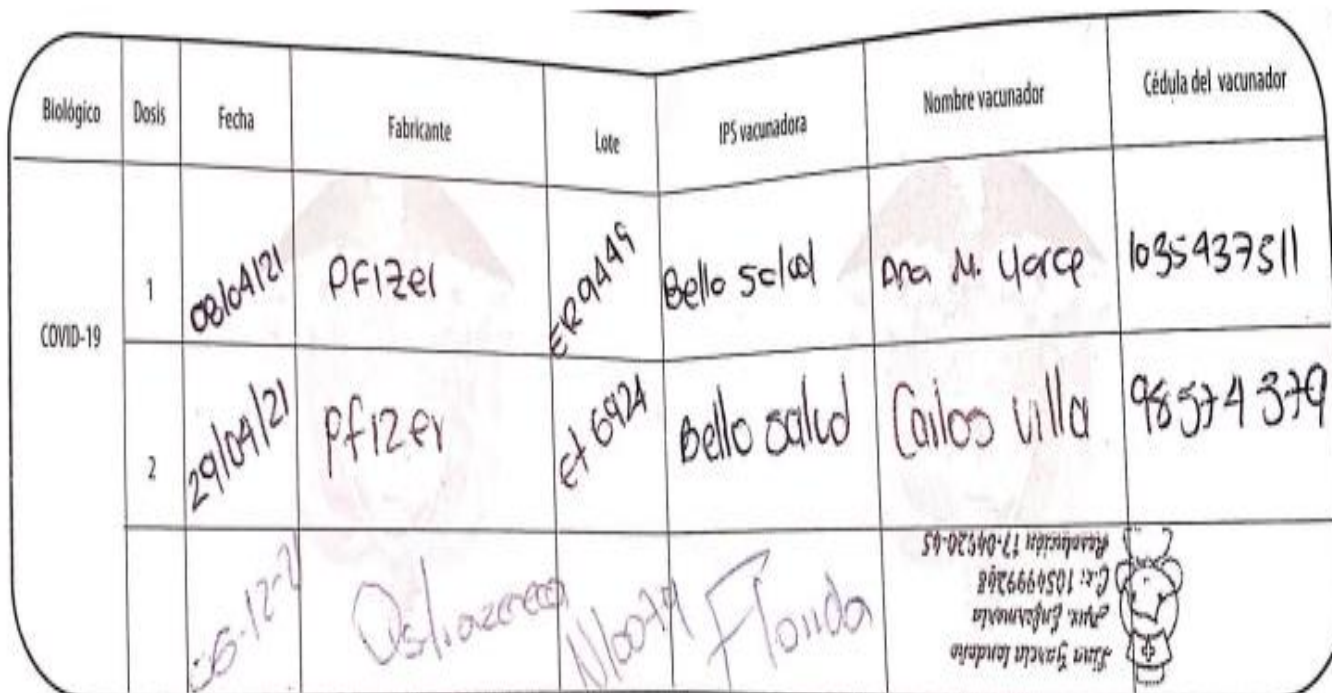 Biológico Dosis Fecha Fabricante Lote IPS vacunadora Nombre vacunador Cédula del vacunador
COVID-19
1 08/04/21 Pfizer ER9449 Bello salud Ana M. 1035437511
2 29/04/21 Pfizer et 6924 Bello salud Carlos Villa 98574379
Florida
Lina García londoño
Aux. Enfermería
C.c: 1054999248
Resolución 17-04920-45